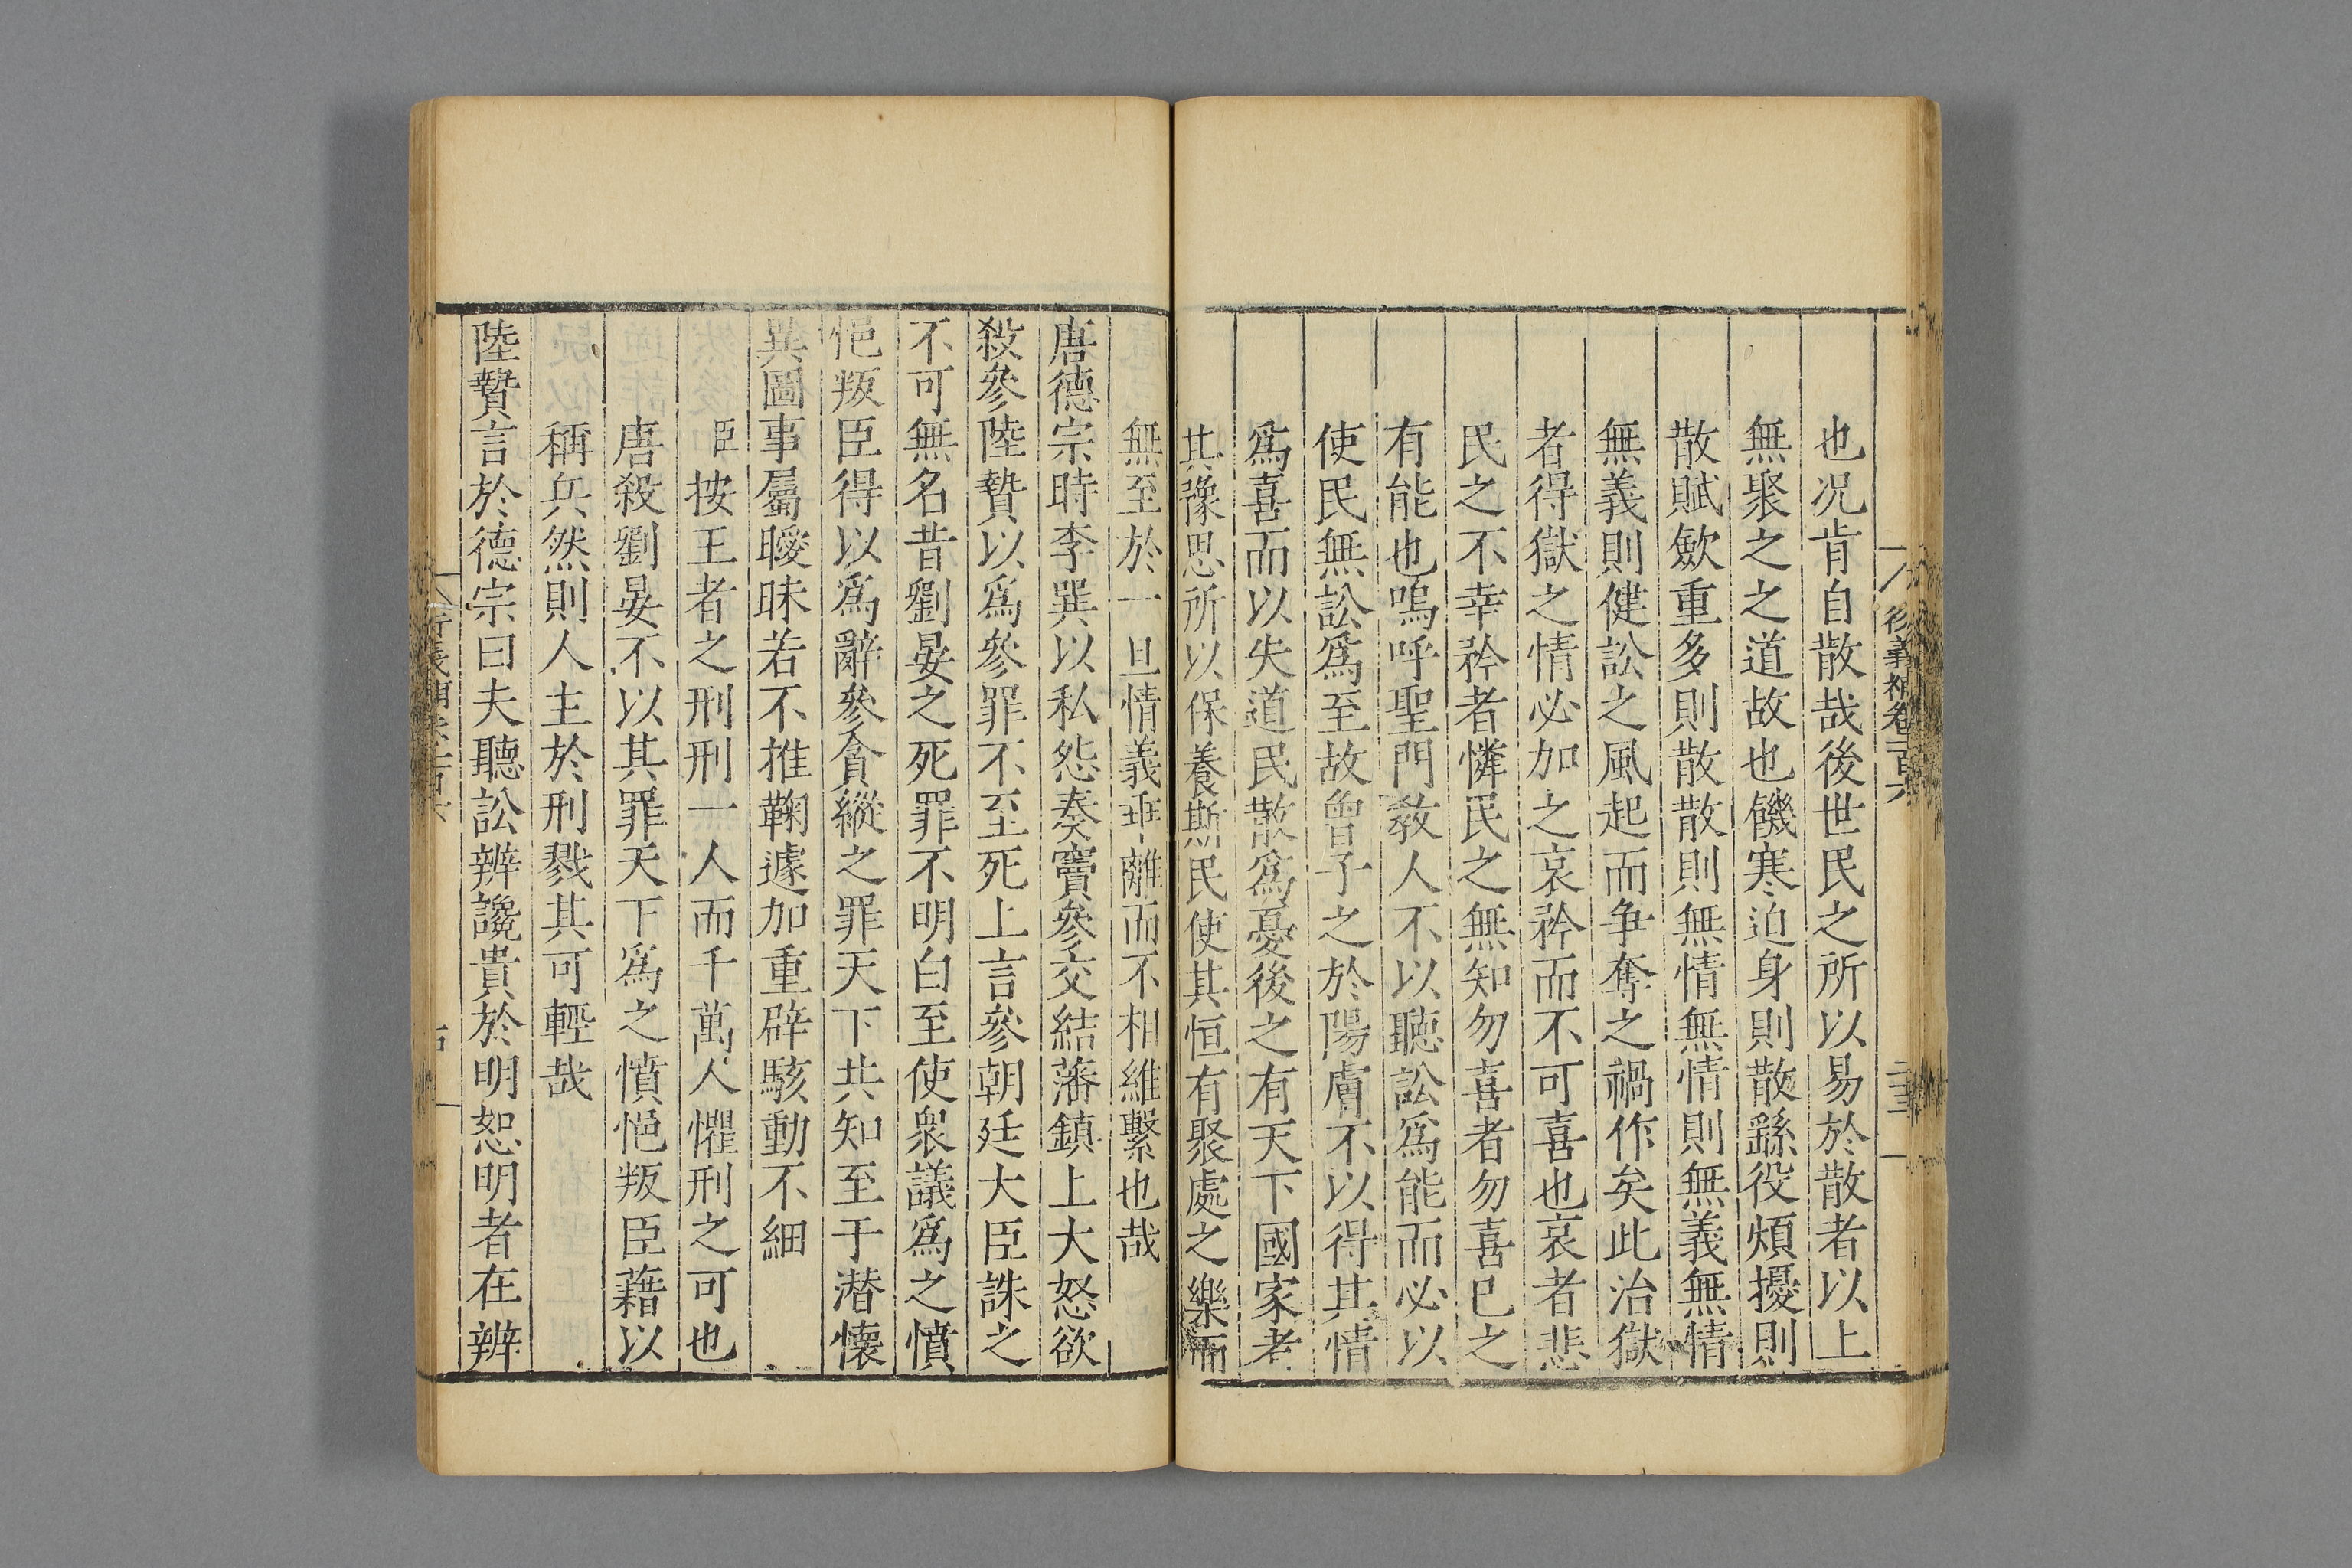 也况肯自散哉後世民之所以易於散者以上
無聚之之道故也饑寒迫身則散繇役煩擾則
散賦歛重多則散散則無情無情則無義無情
無義則健訟之風起而争奪之禍作矣此治獄
者得獄之情必加之哀矜而不可喜也哀者悲
民之不幸矜者憐民之無知勿喜者勿喜已之
有能也嗚呼聖門教人不以聽訟爲能而必以
使民無訟爲至故曾子之於陽膚不以得其情
爲喜而以失道民散爲憂後之有天下國家者
其豫思所以保養斯民使其恒有聚處之樂而
無至於一旦情義乖離而不相維繫也哉
唐德宗時李巽以私怨奏竇參交結藩鎮上大怒欲
殺參陸贄以爲參罪不至死上言參朝廷大臣誅之
不可無名昔劉晏之死罪不明白至使衆議爲之憤
悒叛臣得以爲辭參貪縱之罪天下共知至于潜懷
異圖事屬曖昧若不推鞫遽加重辟駭動不細
臣按王者之刑刑一人而千萬人懼刑之可也
唐殺劉晏不以其罪天下爲之憤悒叛臣藉以
稱兵然則人主於刑戮其可輕哉
陸贄言於德宗曰夫聽訟辨讒貴於明恕明者在辨